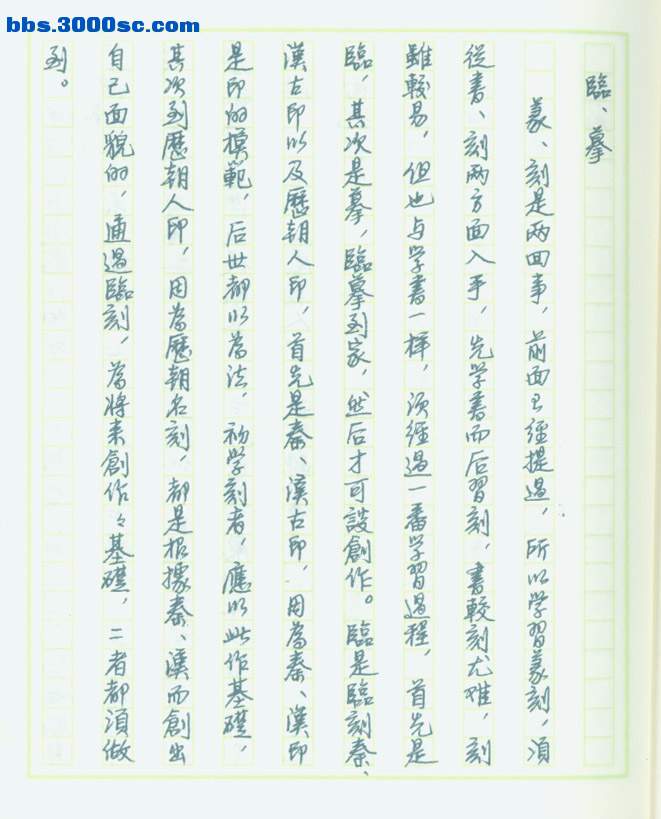 bbs.3000sc.com
臨、摹
篆、刻是两回事，前面已經提過，所以学習篆刻，須
從書、刻两方面入手，先学書而后習刻，書較刻尤难，刻
雖較易，但也与学書一樣，須經過一番学習過程，首先是
臨，其次是摹，臨摹到家，然后才可談創作。臨是臨刻秦、
漢古印以及歷朝人印，首先是秦、漢古印，因為秦、漢印
是印的模範，后世都以為法，初学刻者，應以此作基礎，
其次到歷朝人印，因為歷朝名刻，都是根據秦、漢而創出
自己面貌的，通過臨刻，為將来創作々基礎，二者都須做
到。